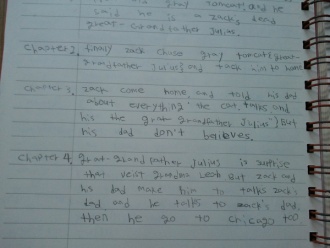 gray tomcat, and he
said he is a zack, dead
great-grandfather Julius.
Chapter 2, finally zack chose gray tomcat (great-
grandfather Julius) and zack him to home
Chapter 3, zack come home and told his dad
about everything "the cat talks and
his the great grandfather Julius") But
his dad don't believes.
Chapter 4, great-grandfather Julius is surprise
that visit grandma Leah But zack and
his dad make him to talks zack's
dad and he talks to zack's dad,
then he go to chicago too